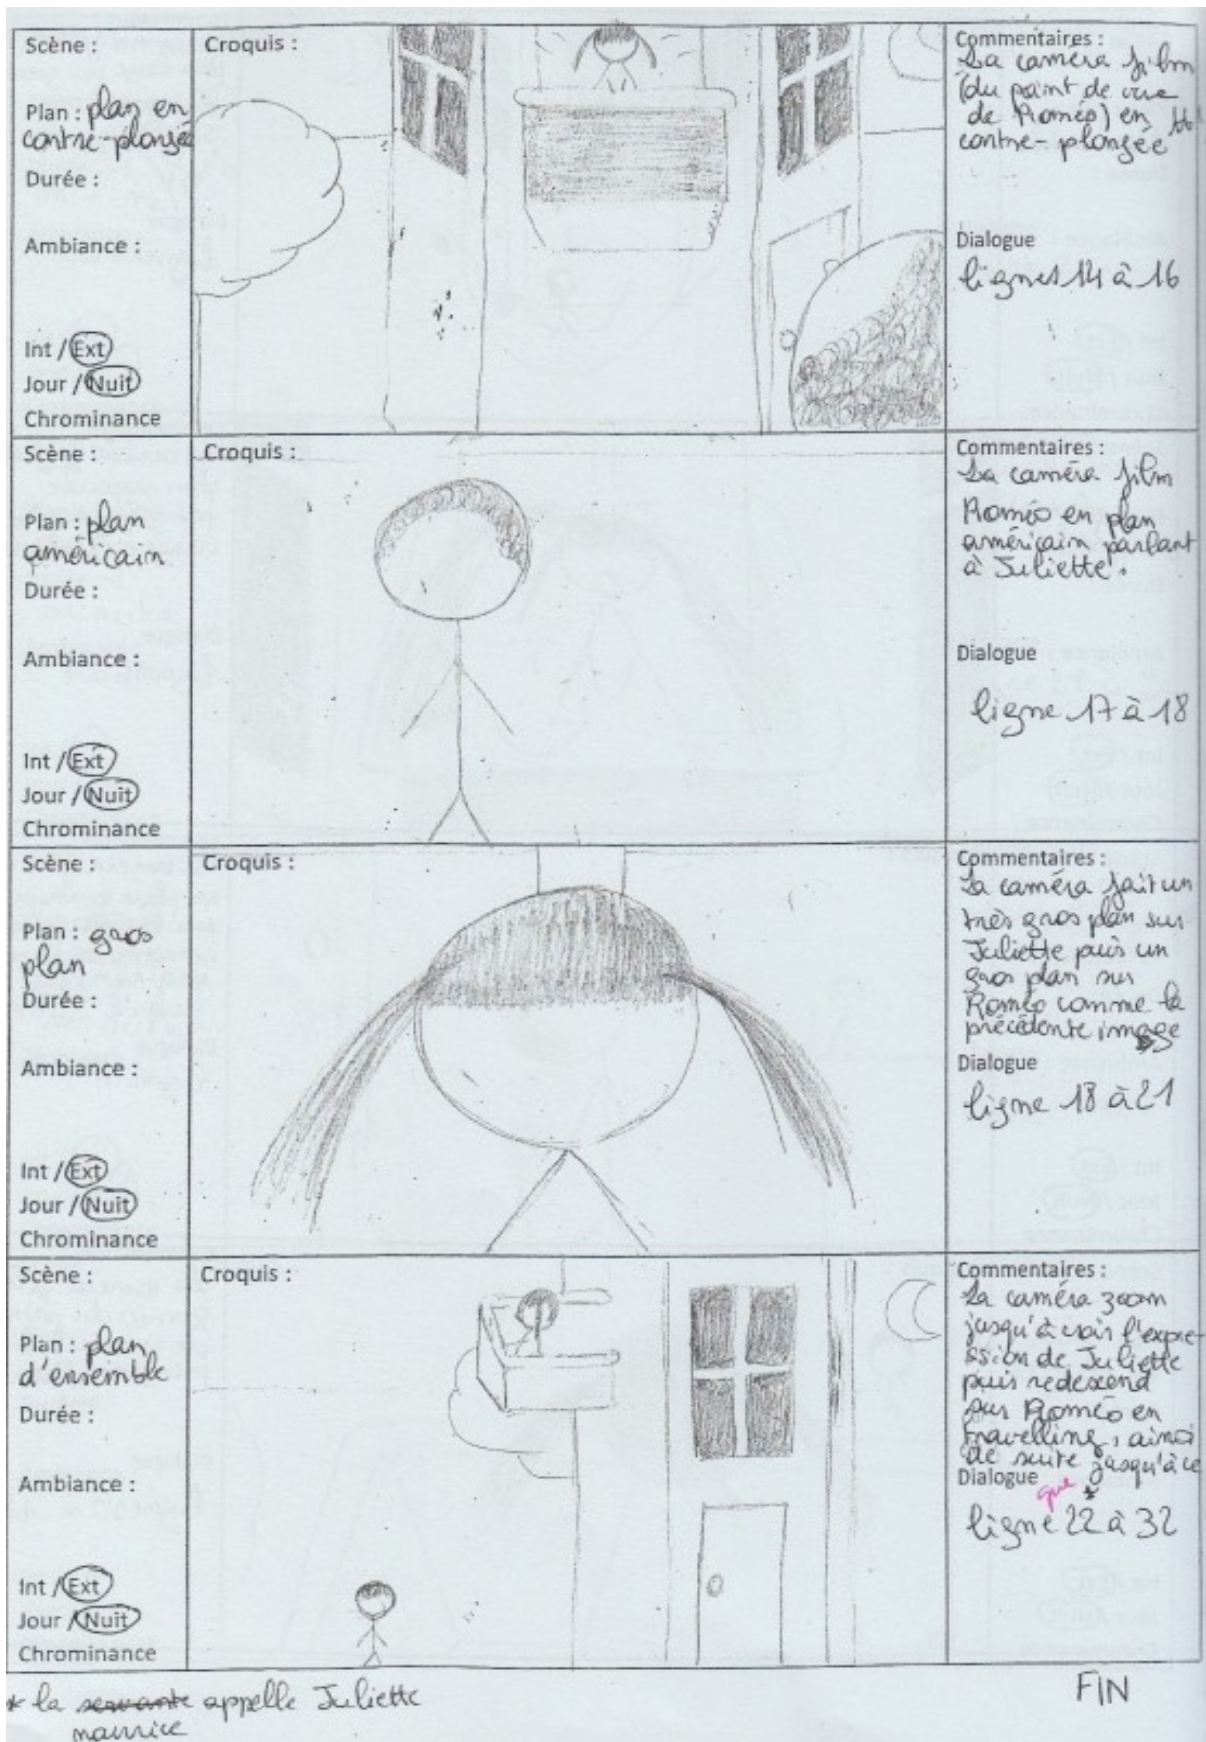 Scène :
Plan : plan en
contre-plongée
Durée :
Ambiance :
Int / Ext
Jour / Nuit
Chrominance
Croquis :
Commentaires :
La caméra film
(du point de vue
de Roméo) en
contre-plongée
Dialogue
lignes 14 à 16
Scène :
Plan : plan
américain
Durée :
Ambiance :
Int / Ext
Jour / Nuit
Chrominance
Croquis :
Commentaires :
La caméra film
Roméo en plan
américain parlant
à Juliette.
Dialogue
ligne 17 à 18
Scène :
Plan : gros
plan
Durée :
Ambiance :
Int / Ext
Jour / Nuit
Chrominance
Croquis :
Commentaires :
La caméra fait un
très gros plan sur
Juliette puis un
gros plan sur
Roméo comme la
précédente image
Dialogue
ligne 18 à 21
Scène :
Plan : plan
d'ensemble
Durée :
Ambiance :
Int / Ext
Jour / Nuit
Chrominance
Croquis :
Commentaires :
La caméra zoom
jusqu'à voir l'expre-
ssion de Juliette
puis redescend
sur Roméo en
travelling, ainsi
de suite jusqu'à ce
Dialogue que *
ligne 22 à 32
* la servante appelle Juliette
nourrice
FIN